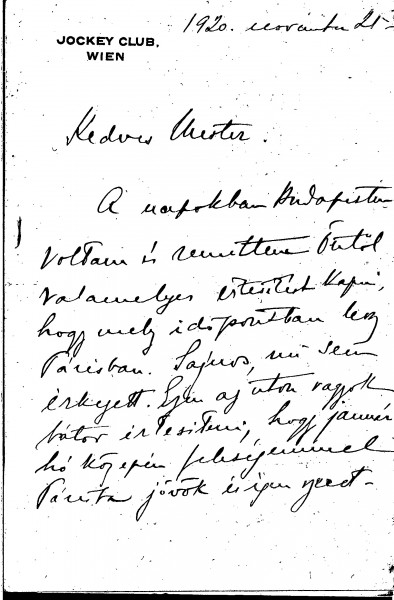 1920. november 21-
JOCKEY CLUB,
WIEN
Kedves Mester.
A napokban Budapesten
voltam és remeltem Öntöl
valamelyes értesitést kapni,
hogy mely időpontban lesz
Párisban. Sajnos, mi sem
érkezett. Ezen az uton vagyok
bátor értesiteni, hogy január
hó közepén feleségemmel
Párisba jövök és igen